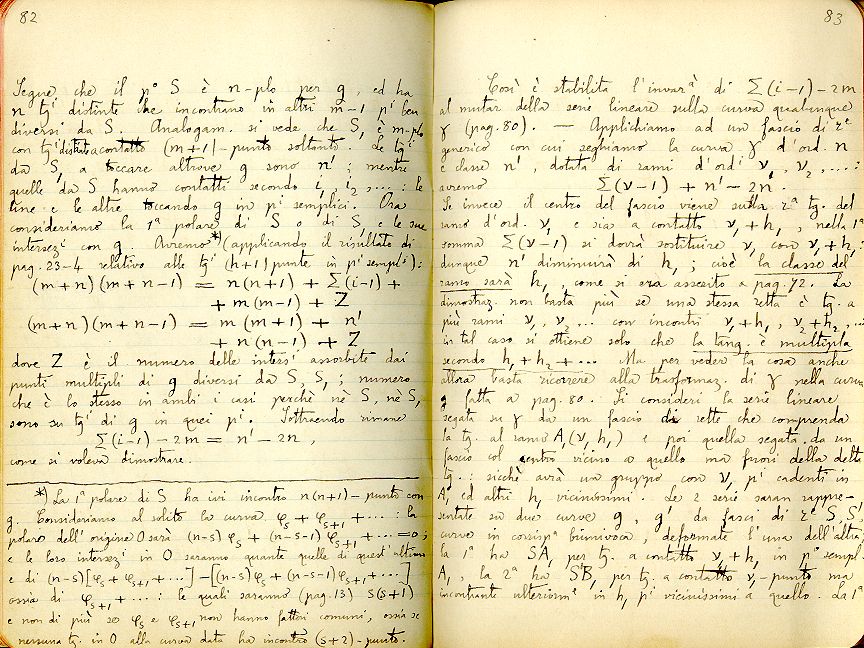 82
Segue che il pº S è n-plo per g, ed ha
n tgⁱ distinte che incontrano in altri m-1 pⁱ ben
diversi da S. Analogam. si vede che S₁ è m-plo
con tgⁱ distinte a contatto (m+1)-punto soltanto. Le tgⁱ
da S₁ a toccare altrove g sono n'; mentre
quelle da S hanno contatti secondo i₁ i₂ ,...: le
une e le altre toccando g in pⁱ semplici. Ora
consideriamo la 1ª polare di S o di S₁ e le sue
intersezⁱ con g. Avremo*) (applicando il risultato di
pag. 23-4 relativo alle tgⁱ (h+1)punte in pⁱ semplⁱ):
(m+n)(m+n-1) = n(n+1) + Σ(i-1) +
+ m(m-1) + Z
(m+n)(m+n-1) = m(m+1) + n'
+ n(n-1) + Z
dove Z è il numero delle intersⁱ assorbite dai
punti multipli di g diversi da S, S₁ ; numero
che è lo stesso in ambi i casi perchè nè S, nè S₁
sono su tgⁱ di g in quei pⁱ. Sottraendo rimane
Σ(i-1) - 2m = n' - 2n ,
come si voleva dimostrare.
*) La 1ª polare di S ha ivi incontro n(n+1)-punto con
g. Consideriamo al solito la curva φₛ + φₛ₊₁ + ····: la
polare dell'origine O sarà (n-s)φₛ + (n-s-1)φₛ₊₁ + ····=0;
e le loro intersezⁱ in O saranno quante quelle di quest'ultima
e di (n-s)[φₛ + φₛ₊₁ + ....] - [(n-s)φₛ + (n-s-1)φₛ₊₁ + ....]
ossia di φₛ₊₁ + ····: le quali saranno (pag. 13) s(s+1)
e non di più se φₛ e φₛ₊₁ non hanno fattori comuni, ossia se
nessuna tg. in O alla curva data ha incontro (s+2)-punto.
83
Così è stabilita l'invarª di Σ(i-1) - 2m
al mutar della serie lineare sulla curva qualunque
γ (pag. 80). — Applichiamo ad un fascio di rᵉ
generico con cui seghiamo la curva γ d'ord. n
e classe n', dotata di rami d'ordⁱ ν₁ ν₂ ,...:
avremo Σ(ν-1) + n' - 2n.
Se invece il centro del fascio viene sulla rᵃ tg. del
ramo d'ord. ν₁ e sia a contatto ν₁+h₁ , nella 1ª
somma Σ(ν-1) si dovrà sostituire ν₁ con ν₁+h₁:
dunque n' diminuirà di h₁ ; cioè la classe del
ramo sarà h₁ , come si era asserito a pag. 72. La
dimostraz. non basta più se una stessa retta è tg. a
più rami ν₁, ν₂ ... con incontri ν₁+h₁, ν₂+h₂,...:
in tal caso si ottiene solo che la tang. è multipla
secondo h₁+h₂+... Ma per veder la cosa anche
allora basta ricorrere alla trasformaz. di γ nella curva
g fatta a pag. 80. Si consideri la serie lineare
segata su γ da un fascio di rette che comprenda
la tg. al ramo A₁(ν₁ h₁) e poi quella segata da un
fascio col centro vicino a quello ma fuori della detta
tg.: sicchè avrà un gruppo con ν₁ pⁱ cadenti in
A₁ ed altri h₁ vicinissimi. Le 2 serie saran rappre-
sentate su due curve g, g' da fasci di rᵉ S, S'
curve in corrispª biunivoca, deformate l'una dell'altra;
la 1ª ha SA₁ per tg. a contatto ν₁+h₁ in pº sempl.
A₁ , la 2ª ha SB₁ per tg. a contatto ν₁-punto ma
incontrante ulteriormⁱ in h₁ pⁱ vicinissimi a quello. La 1ª